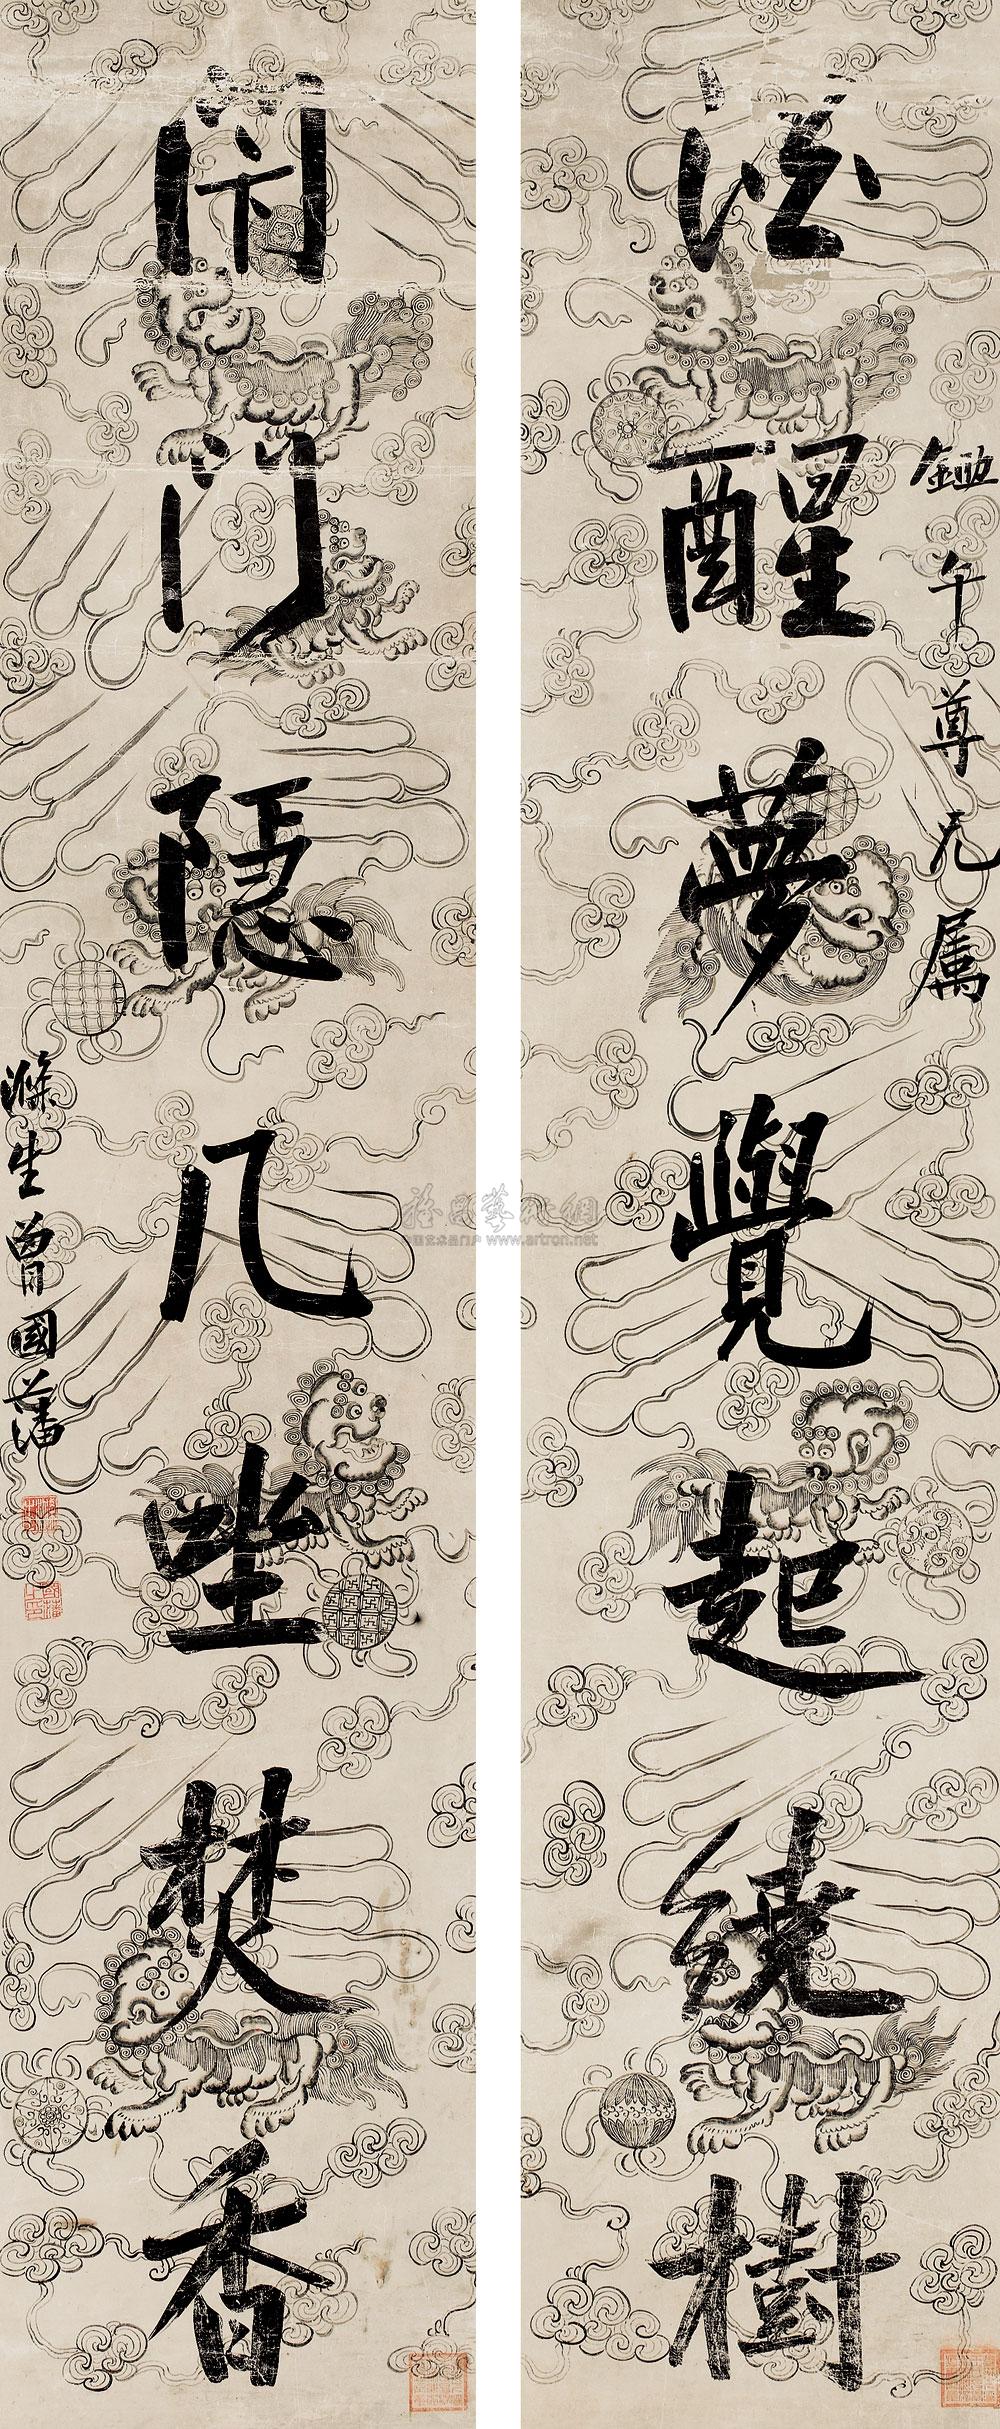 酒醒夢覺起繞樹
鋤午尊兄属
閇門隱几坐焚香
滌生曾國藩
雅昌藝術網
www.artron.net